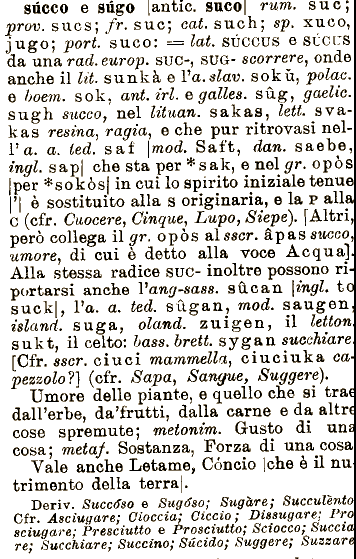 súcco e súgo |antic. suco| rum. suc;
prov. sucs; fr. suc; cat. such; sp. xuco,
jugo; port. suco: = lat. SÚCCUS e SÚCUS
da una rad. europ. SUC-, SUG- scorrere, onde
anche il lit. sunkà e l'a. slav. sokŭ, polac.
e boem. sok, ant. irl. e galles. sûg, gaelic.
sugh succo, nel lituan. sakas, lett. sva-
kas resina, ragia, e che pur ritrovasi nel-
l'a. a. ted. saf |mod. Saft, dan. saebe,
ingl. sap| che sta per *sak, e nel gr. opòs
|per *sokòs| in cui lo spirito iniziale tenue
|'| è sostituito alla s originaria, e la P alla
C (cfr. Cuocere, Cinque, Lupo, Siepe). [Altri,
però collega il gr. opòs al sscr. âpas succo,
umore, di cui è detto alla voce Acqua].
Alla stessa radice SUC- inoltre possono ri-
portarsi anche l'ang-sass. sûcan |ingl. to
suck|, l'a. a. ted. sûgan, mod. saugen,
island. suga, oland. zuigen, il letton.
sukt, il celto: bass. brett. sygan succhiare.
[Cfr. sscr. ciuci mammella, ciuciuka ca-
pezzolo?] (cfr. Sapa, Sangue, Suggere).
Umore delle piante, e quello che si trae
dall'erbe, da'frutti, dalla carne e da altre
cose spremute; metonim. Gusto di una
cosa; metaf. Sostanza, Forza di una cosa
Vale anche Letame, Cóncio |che è il nu-
trimento della terra|.
Deriv. Succóso e Sugóso; Sugàre; Succulènto
Cfr. Asciugare; Cioccia; Ciccio; Dissugare; Pro
sciugare; Presciutto e Prosciutto; Sciocco; Succia
re; Succhiare; Succino; Súcido; Suggere; Suzzare